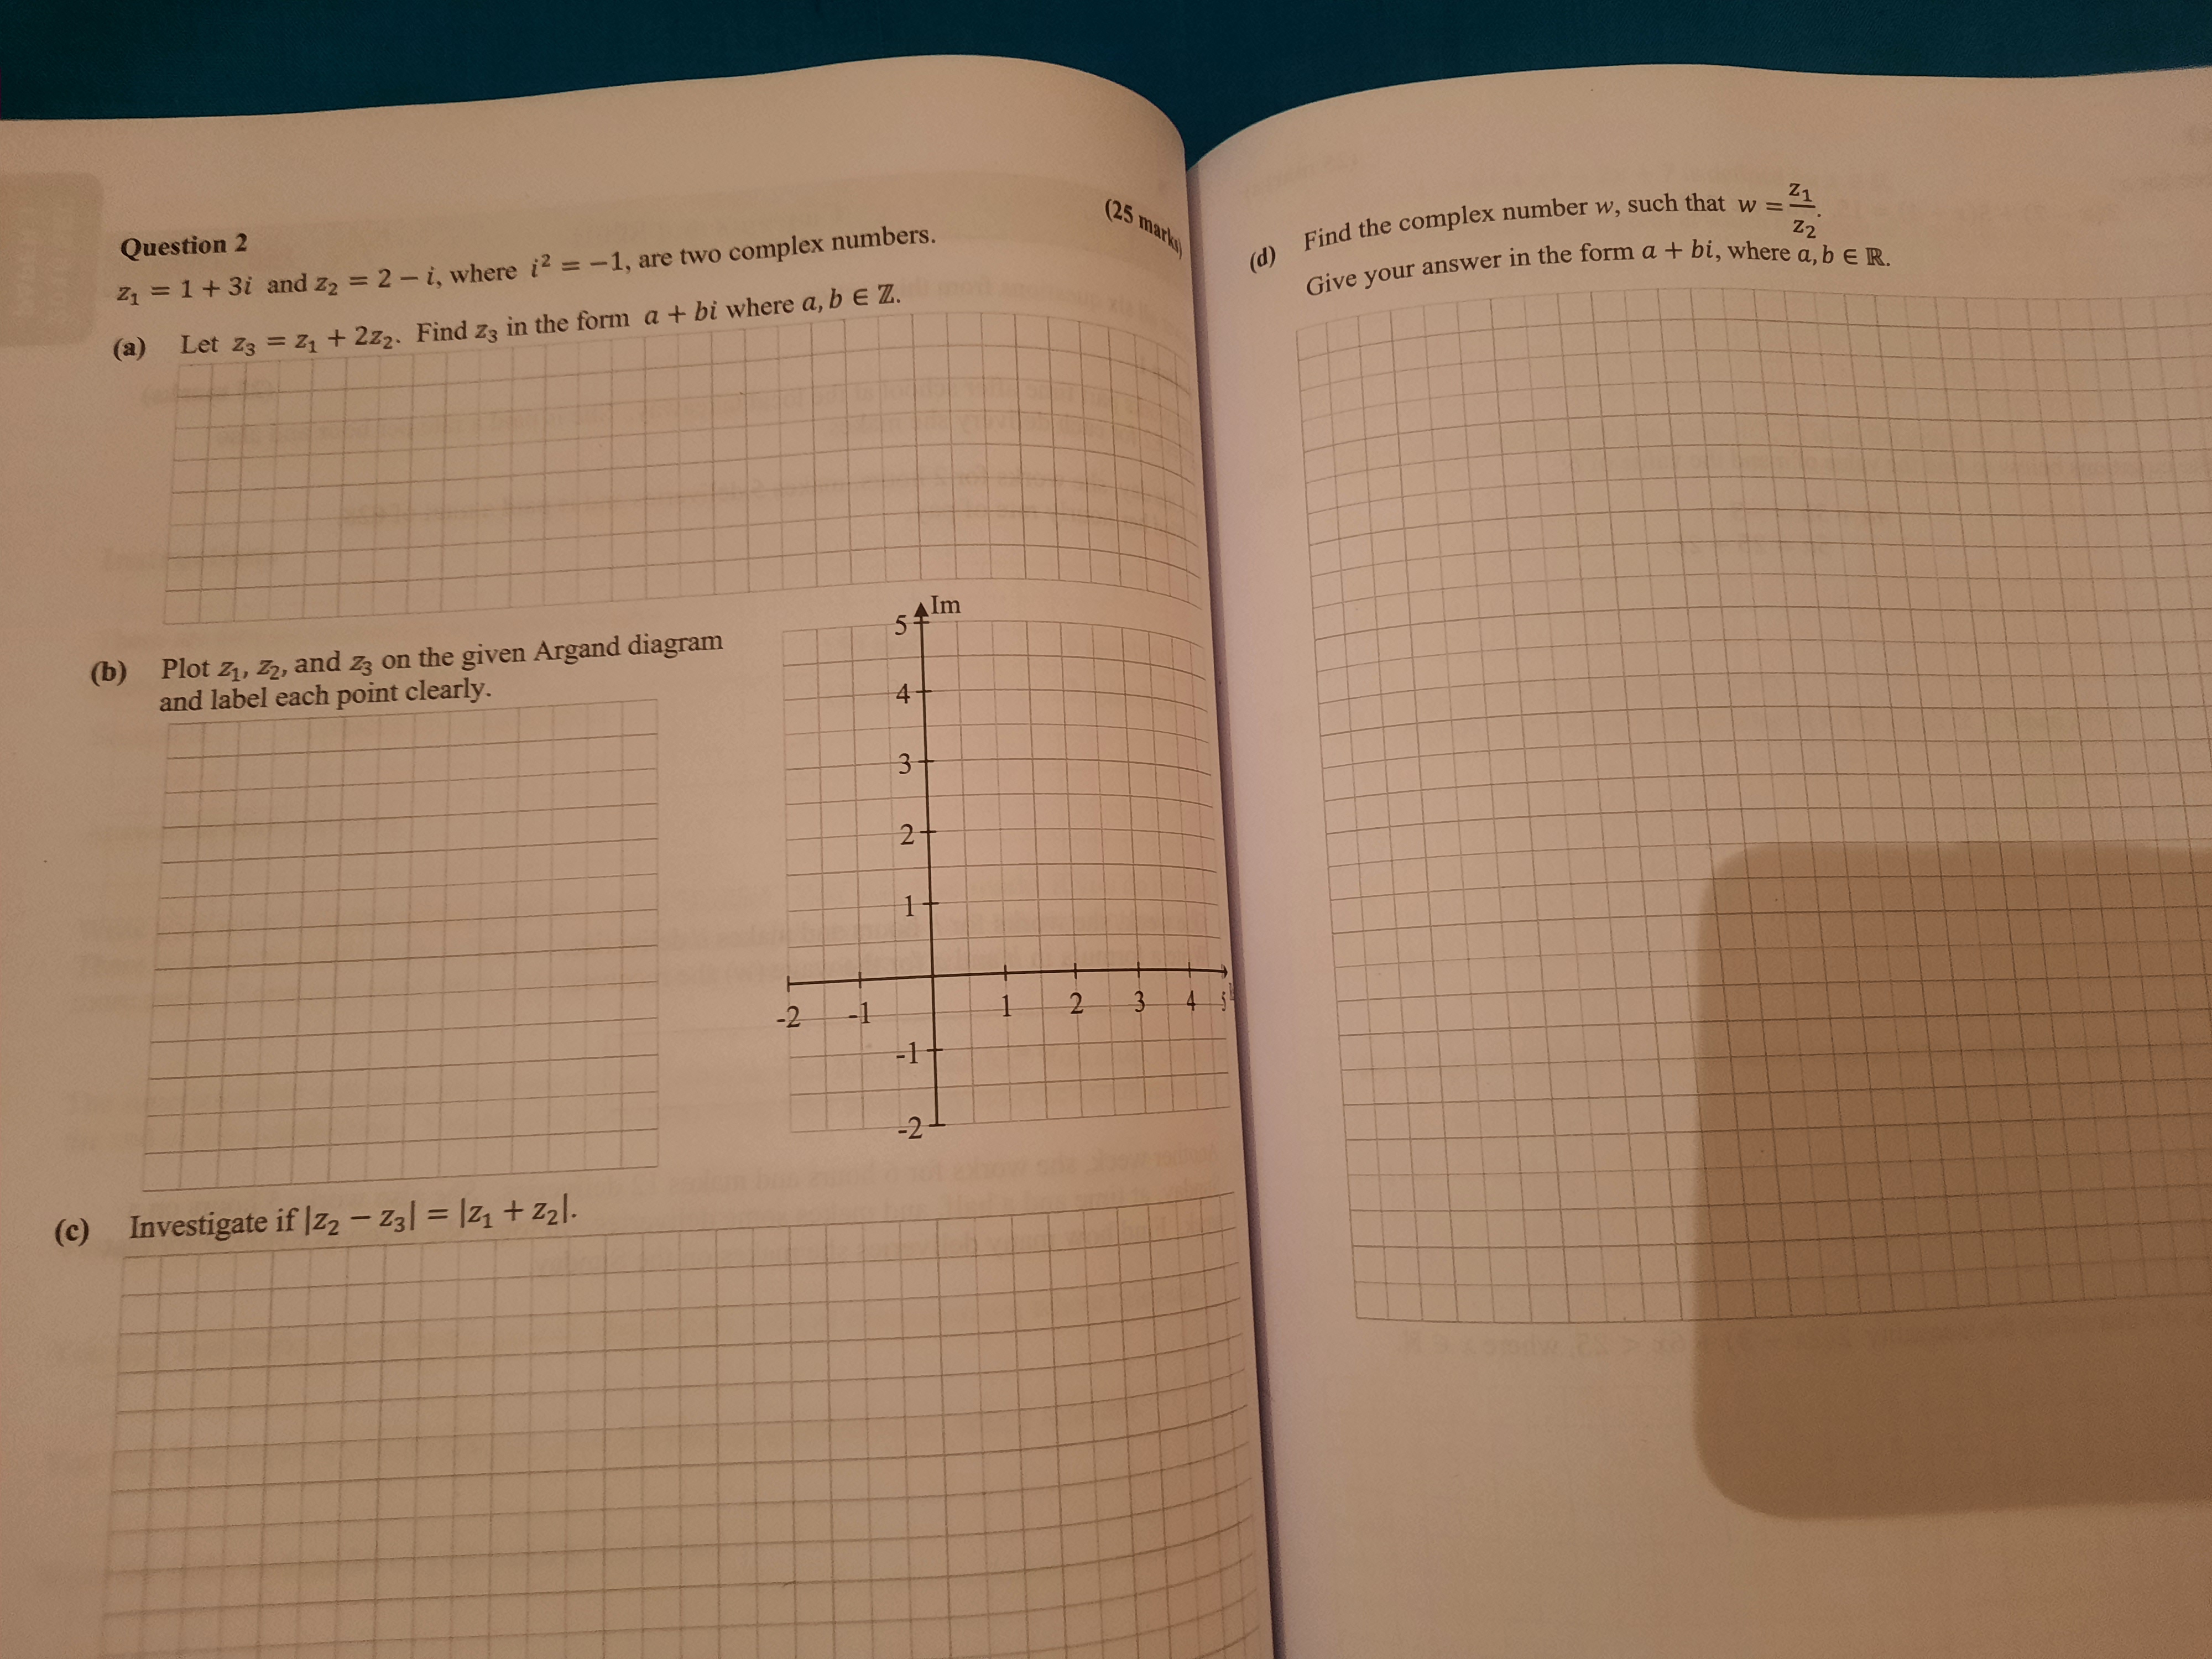 Question 2
(25 marks)
z₁ = 1 + 3i and z₂ = 2 − i, where i² = −1, are two complex numbers.
(a) Let z₃ = z₁ + 2z₂. Find z₃ in the form a + bi where a, b ∈ ℤ.
(b) Plot z₁, z₂, and z₃ on the given Argand diagram
and label each point clearly.
Im
5
4
3
2
1
-2 -1 1 2 3 4 5
-1
-2
(c) Investigate if |z₂ − z₃| = |z₁ + z₂|.
(d) Find the complex number w, such that w = z₁/z₂.
Give your answer in the form a + bi, where a, b ∈ ℝ.